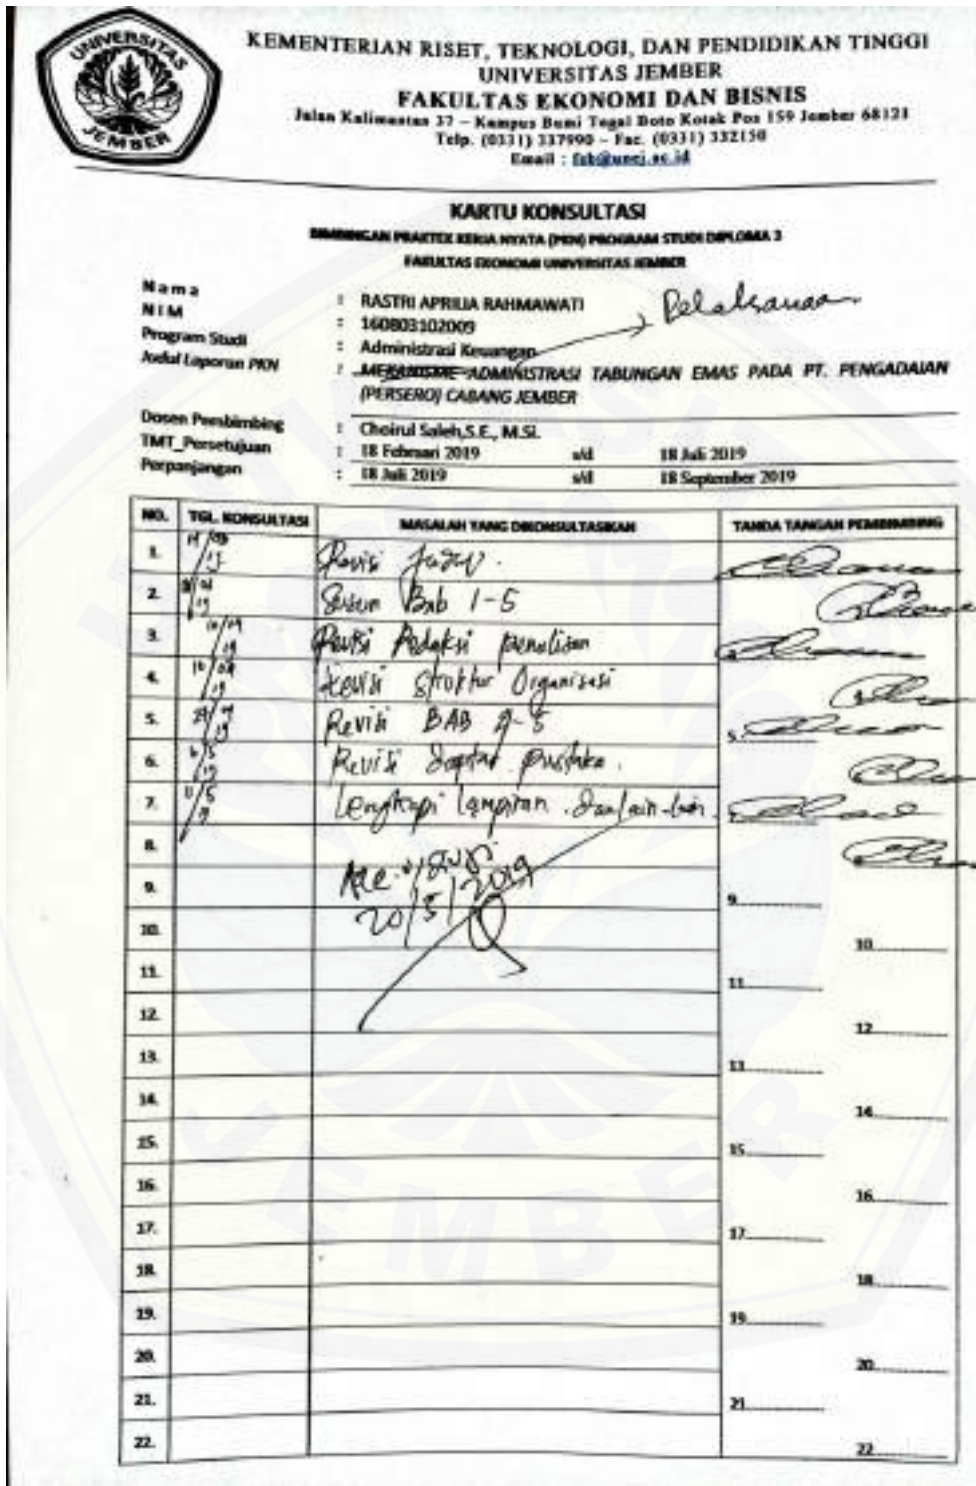 UNIVERSITAS
JEMBER
KEMENTERIAN RISET, TEKNOLOGI, DAN PENDIDIKAN TINGGI
UNIVERSITAS JEMBER
FAKULTAS EKONOMI DAN BISNIS
Jalan Kalimantan 37 – Kampus Bumi Tegal Boto Kotak Pos 159 Jember 68121
Telp. (0331) 337990 – Fac. (0331) 332150
Email : feb@unej.ac.id
KARTU KONSULTASI
BIMBINGAN PRAKTEK KERJA NYATA (PKN) PROGRAM STUDI DIPLOMA 3
FAKULTAS EKONOMI UNIVERSITAS JEMBER
Nama : RASTRI APRILIA RAHMAWATI
Pelaksanaan
NIM : 160803102009
Program Studi : Administrasi Keuangan
Judul Laporan PKN : MEKANISME ADMINISTRASI TABUNGAN EMAS PADA PT. PENGADAIAN
(PERSERO) CABANG JEMBER
Dosen Pembimbing : Choirul Saleh,S.E., M.Si.
TMT_Persetujuan : 18 Februari 2019 s/d 18 Juli 2019
Perpanjangan : 18 Juli 2019 s/d 18 September 2019
NO. TGL. KONSULTASI MASALAH YANG DIKONSULTASIKAN TANDA TANGAN PEMBIMBING
1. Revisi Judul.
2. Susun Bab 1-5
3. Revisi Redaksi penulisan
4. Revisi Struktur Organisasi
5. Revisi BAB 2-5 5.
6. 6/5/19 Revisi Daftar pustaka.
7. Lengkapi Lampiran dan lain-lain. 7.
8.
Acc. Uji
20/5/2019
9. 9.
10. 10.
11. 11.
12. 12.
13. 13.
14. 14.
15. 15.
16. 16.
17. 17.
18. 18.
19. 19.
20. 20.
21. 21.
22. 22.
JEMBER